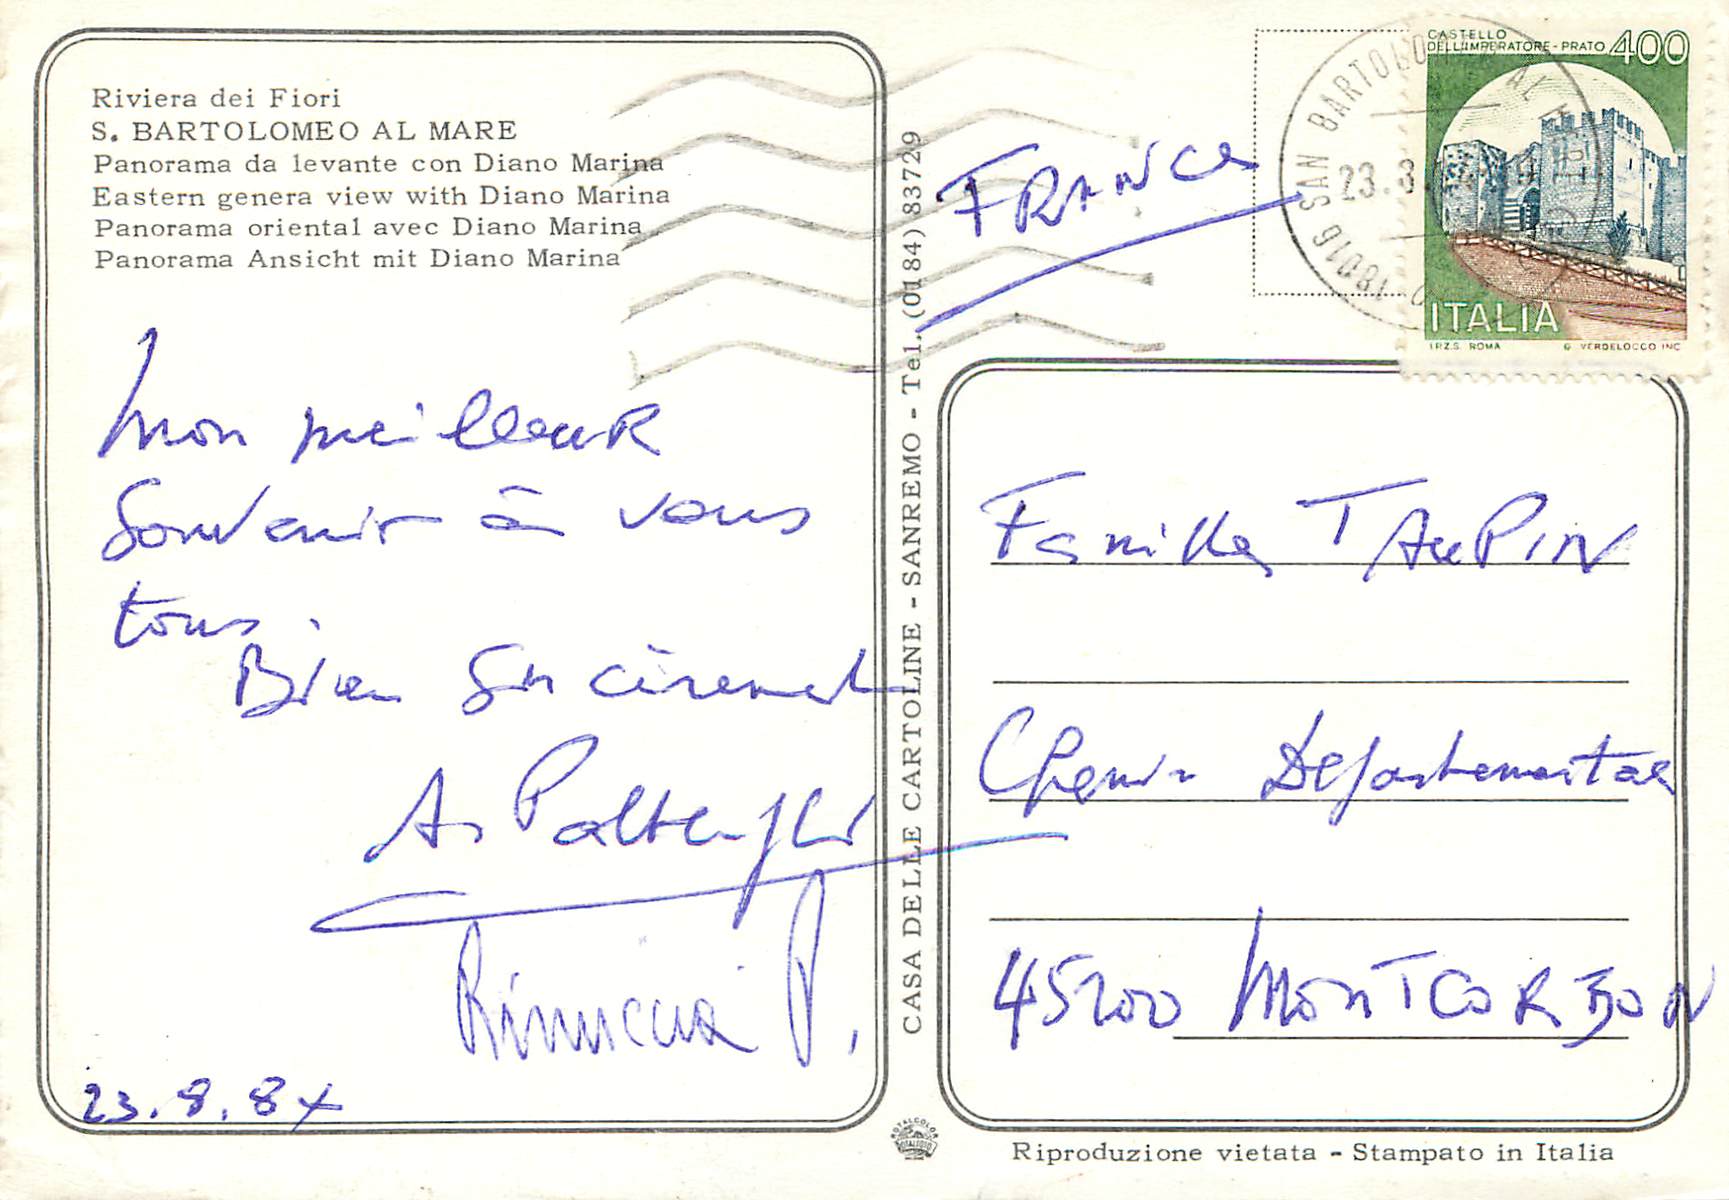 Riviera dei Fiori
S. BARTOLOMEO AL MARE
Panorama da levante con Diano Marina
Eastern genera view with Diano Marina
Panorama oriental avec Diano Marina
Panorama Ansicht mit Diano Marina
Mon meilleur
Souvenir à vous
tous.
Bien sincèrement
A. Pattenghi
Rinuccia P.
23.8.84
CASA DELLE CARTOLINE - SANREMO - Tel. (0184) 83729
FRANCE
CASTELLO
DELL'IMPERATORE - PRATO 400
ITALIA
I.P.Z.S. ROMA G. VERDELOCCO INC.
18016 SAN BARTOLOMEO AL MARE
23.8
Famille TAUPIN
Chemin Départemental
45200 MONTCORBON
ROTALCOLOR
ROTALFOTO
Riproduzione vietata - Stampato in Italia